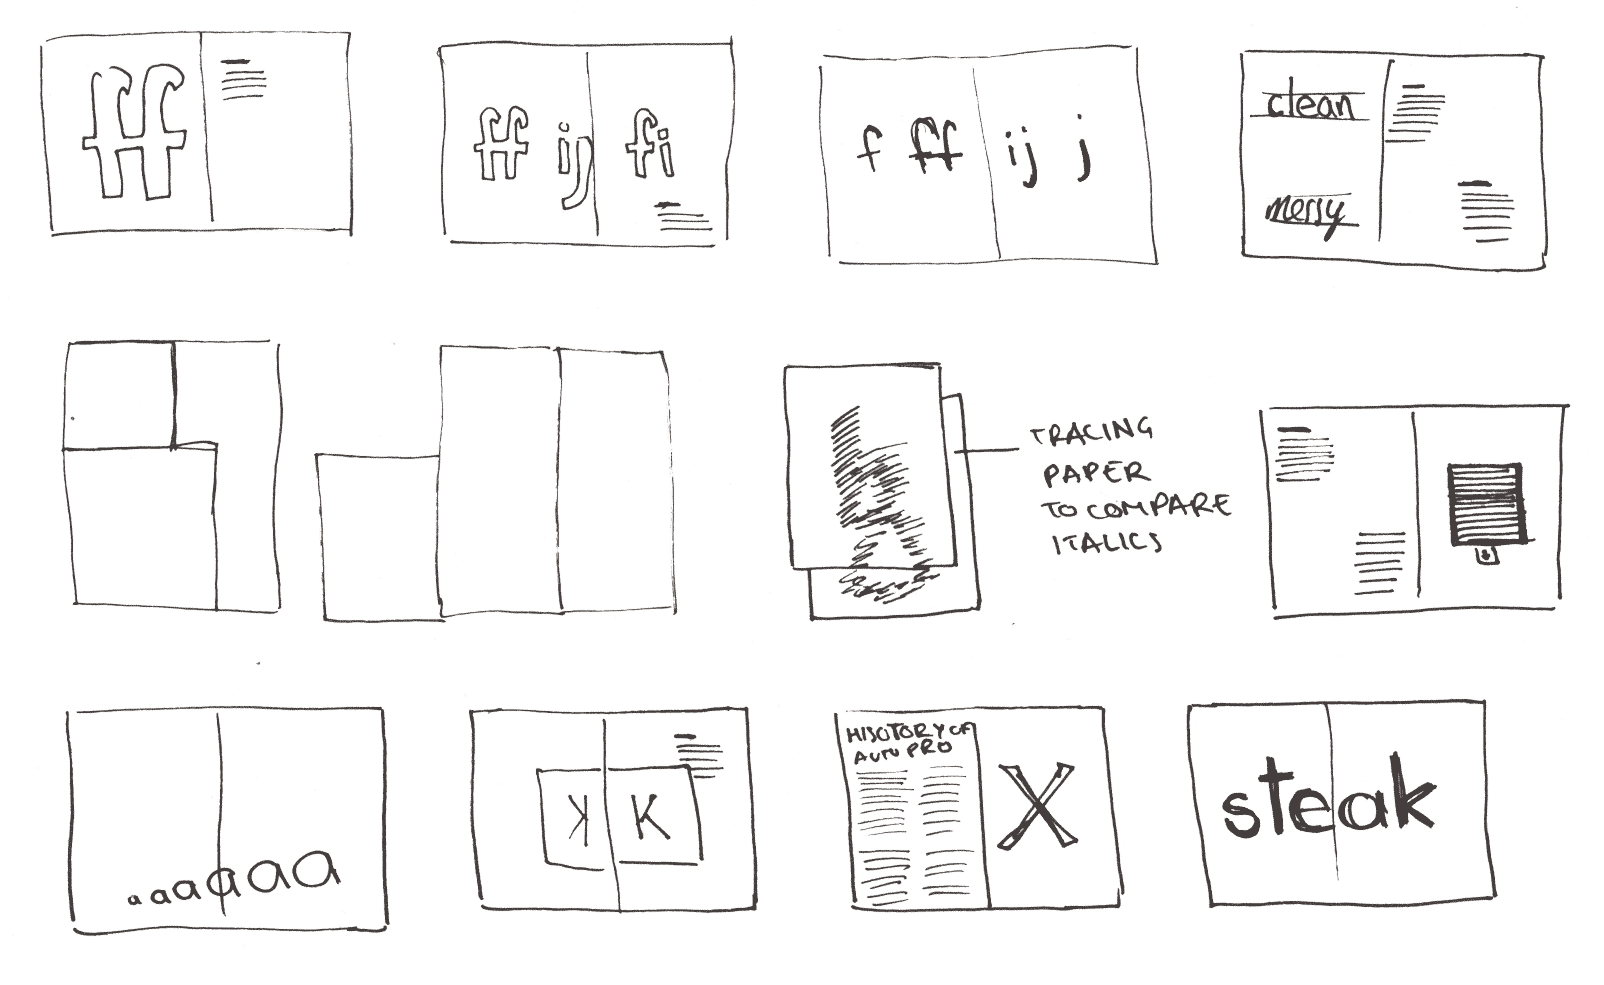 ff
ff ij fi
f ff ij j
clean
messy
TRACING
PAPER
TO COMPARE
ITALICS
a a a a a a
K K
HISOTORY OF
AUTO PRO
X
steak